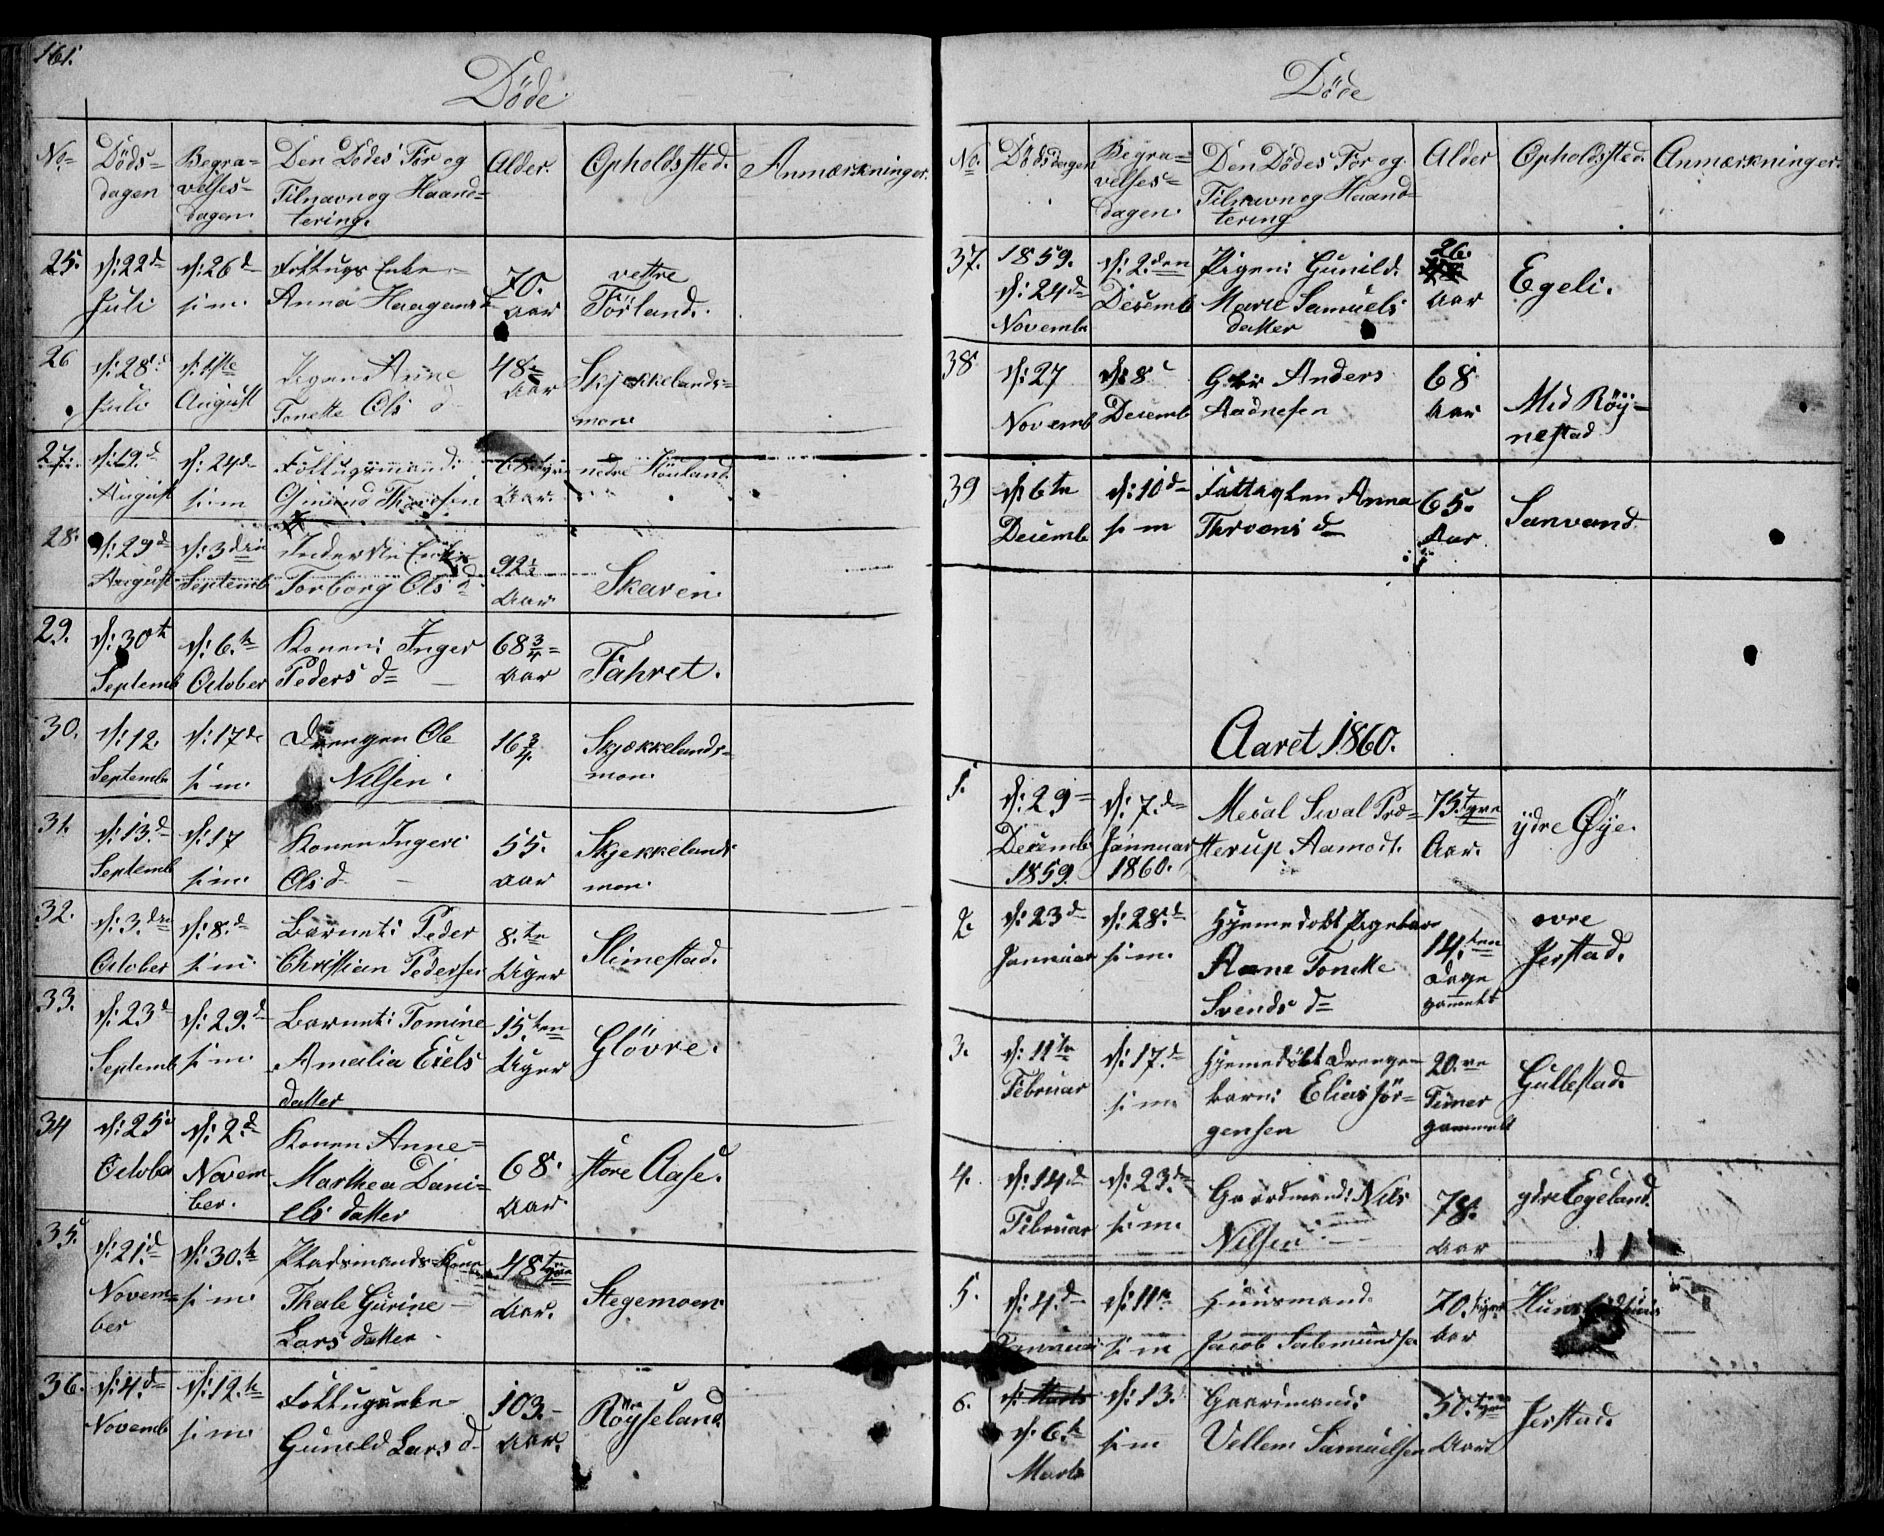 161.
Döde.
No=
Döds=
dagen
Begra=
velses=
dagen.
Den Dödes' For og
Tilnavn og Haand=
tering.
Alder.
Opholdssted.
Anmærkninger.
25.
d: 22d
Juli
d: 26d
s: m.
Enke
Anna Haagens d
70.
Aar
vestre
Förland.
26
d: 28d
Juli
d: 1ste
August
Pigen Anne
Tonette Ols d
48
Aar
Skjækkelands=
moen
27.
d: 19.d
August
d: 24d
s: m
Osmund
68 tyve
Aar.
nedre Höuland.
28.
d: 29d
August
d: 3die
Septemb
Inderste Enke
Torborg Ols d
92½
Aar
Skaren.
29.
d: 30te
Septemb
d: 6.te
October
Konen: Inger
Peders d=
68¾=
Aar
Fahret.
30.
d: 12.
Septemb
d: 17de
s: m.
Drengen Ole
Nilsen.
16¾
Skjækkelands=
moen.
31.
d: 13.d
Septemb
d: 17
s: m.
Konen Ingeri
Ols d
55.
Aar
Skjekkelands
moen.
32.
d: 3.die
October
d: 8.d
s: m.
Barnet: Peder
Christian Pedersen
8.te
Uger
Slimestad.
33.
d: 23d
Septemb
d: 29.d
s: m.
Barnet: Tomine
Amalia Eiels
datter
15ten
Uger
Glövre.
34
d: 25d
October
d: 2.d
Novem
ber.
Konen Anne=
Marthea Dani=
els datter
68.
Aar.
store Aase.
35.
d: 21.d
Novem=
ber
d: 30.te
s: m.
Pladsmands Kone
Thale Gurine
Lars datter
48 tyve
Aar.
Stegemoen.
36.
d: 4.de
Novemb
d: 12.te
s: m.
Gunild Lars d.
103.
Aar.
Röyseland.
Döde
No.
Dödsdagen
Begra=
velses=
dagen.
Den Dödes For og
Tilnavn og Haand=
tering
Alder
Opholdssted.
Anmærkninger.
37.
1859.
d: 24d
Novembr
d: 2.den
Decemb
Pigen: Gunild.
Marie Samuels
datter
26.
Aar
Egeli.
38
d: 27
Novemb
d: 8d
Decemb
Anders
Aadnesen
68
Aar
Mid Röy=
nestad
39
d: 6te
Decemb
d: 10d
s: m
Anna
Tarvons d=
65.
Aar
Sanvand
Aaret 1860.
1.
d: 29
Decemb
1859.
d: 7.de
Januar
1860.
Mecal Sival Præ=
sterup Aamodt.
75 tyve
Aar.
ÿdre Øÿe.
2.
d: 23d
Januar
d: 28.d
s: m.
Hjemedöbt Pigebarn
Anne Tonette
Svends d=
14.ten
Dage
gammelt
övre
Jerstad.
3.
d: 11te
Februar
d: 17.d
s: m.
Hjemedöbt Drenge
barn: Elias Jör=
gensen
20.ve
Timer
gammelt
Gullestad.
4.
d: 14d
Februar
d: 23.de
s: m.
Gaardmand: Nils
Nilsen
78.
Aar
ydre Egeland.
5.
d: 4.d
Januar
d: 11te
s: m
Huusmand.
Jacob Salemundsen
70.
Aar
6.
d: Marts
d: 6.te
Marts
d: 13.
s: m
Gaardmand:
Vellem Samuelsen
50. tyve
Aar
Jerstad.